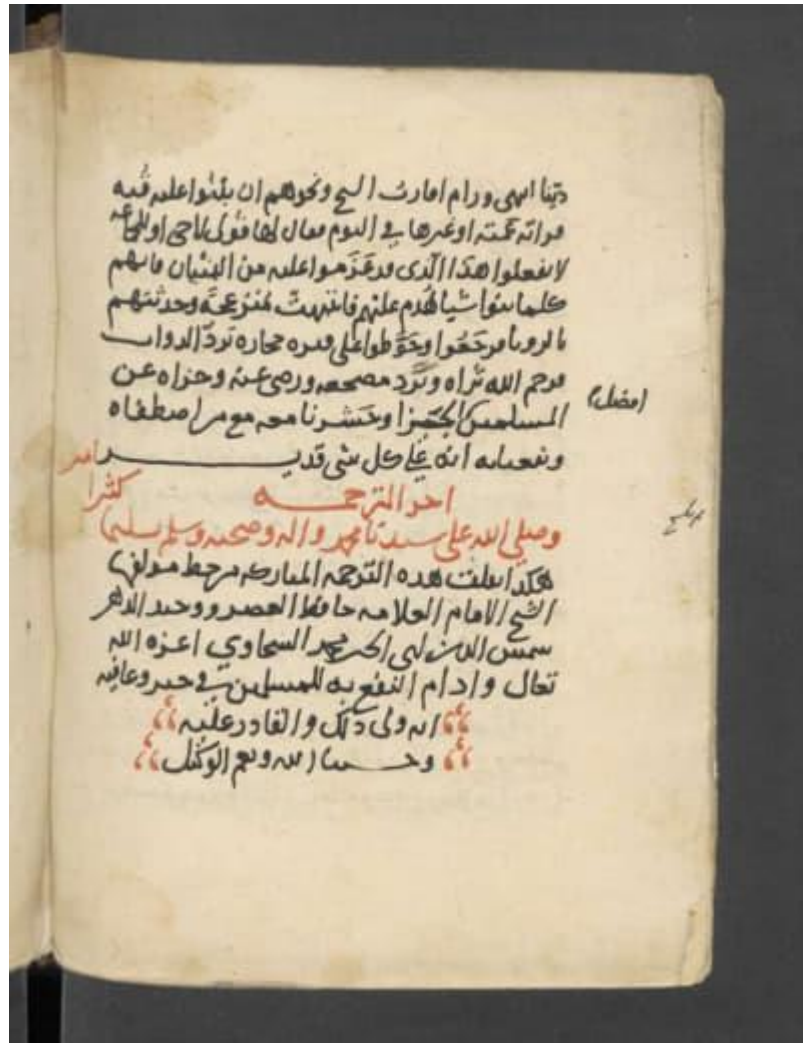 دينا انهى ورام اقارب الشيخ ونحوهم ان يبنوا عليه قبة
فراته عمته او غيرها في النوم فقال لها قولي للاخي او للجماعة
لا تفعلوا هذا الذي قد عزموا عليه من البنيان فانهم
كلما بنوا شيا هدم عليهم فانتبهت منزعجة وحدثتهم
بالرويا فرجعوا وحوطوا على قبره حجاره ترد الدواب
فرحم الله ثراه وبرد مضجعه ورضي عنه وجزاه عن
المسلمين الجزا وحشرنا معه مع من اصطفاه
افضل
واجتباه انه على كل شي قدير
امين
اخر الترجمه
كثيرا
وصلى الله على سيدنا محمد واله وصحبه وسلم تسليما
هكذا نقلت هذه الترجمه المباركه من خط مولفها
الشيخ الامام العلامه حافظ العصر ووحيد الدهر
شمس الدين ابي الخير محمد السخاوي اعزه الله
تعالى وادام النفع به للمسلمين في خير وعافيه
انه ولي ذلك والقادر عليه
وحسبنا الله ونعم الوكيل